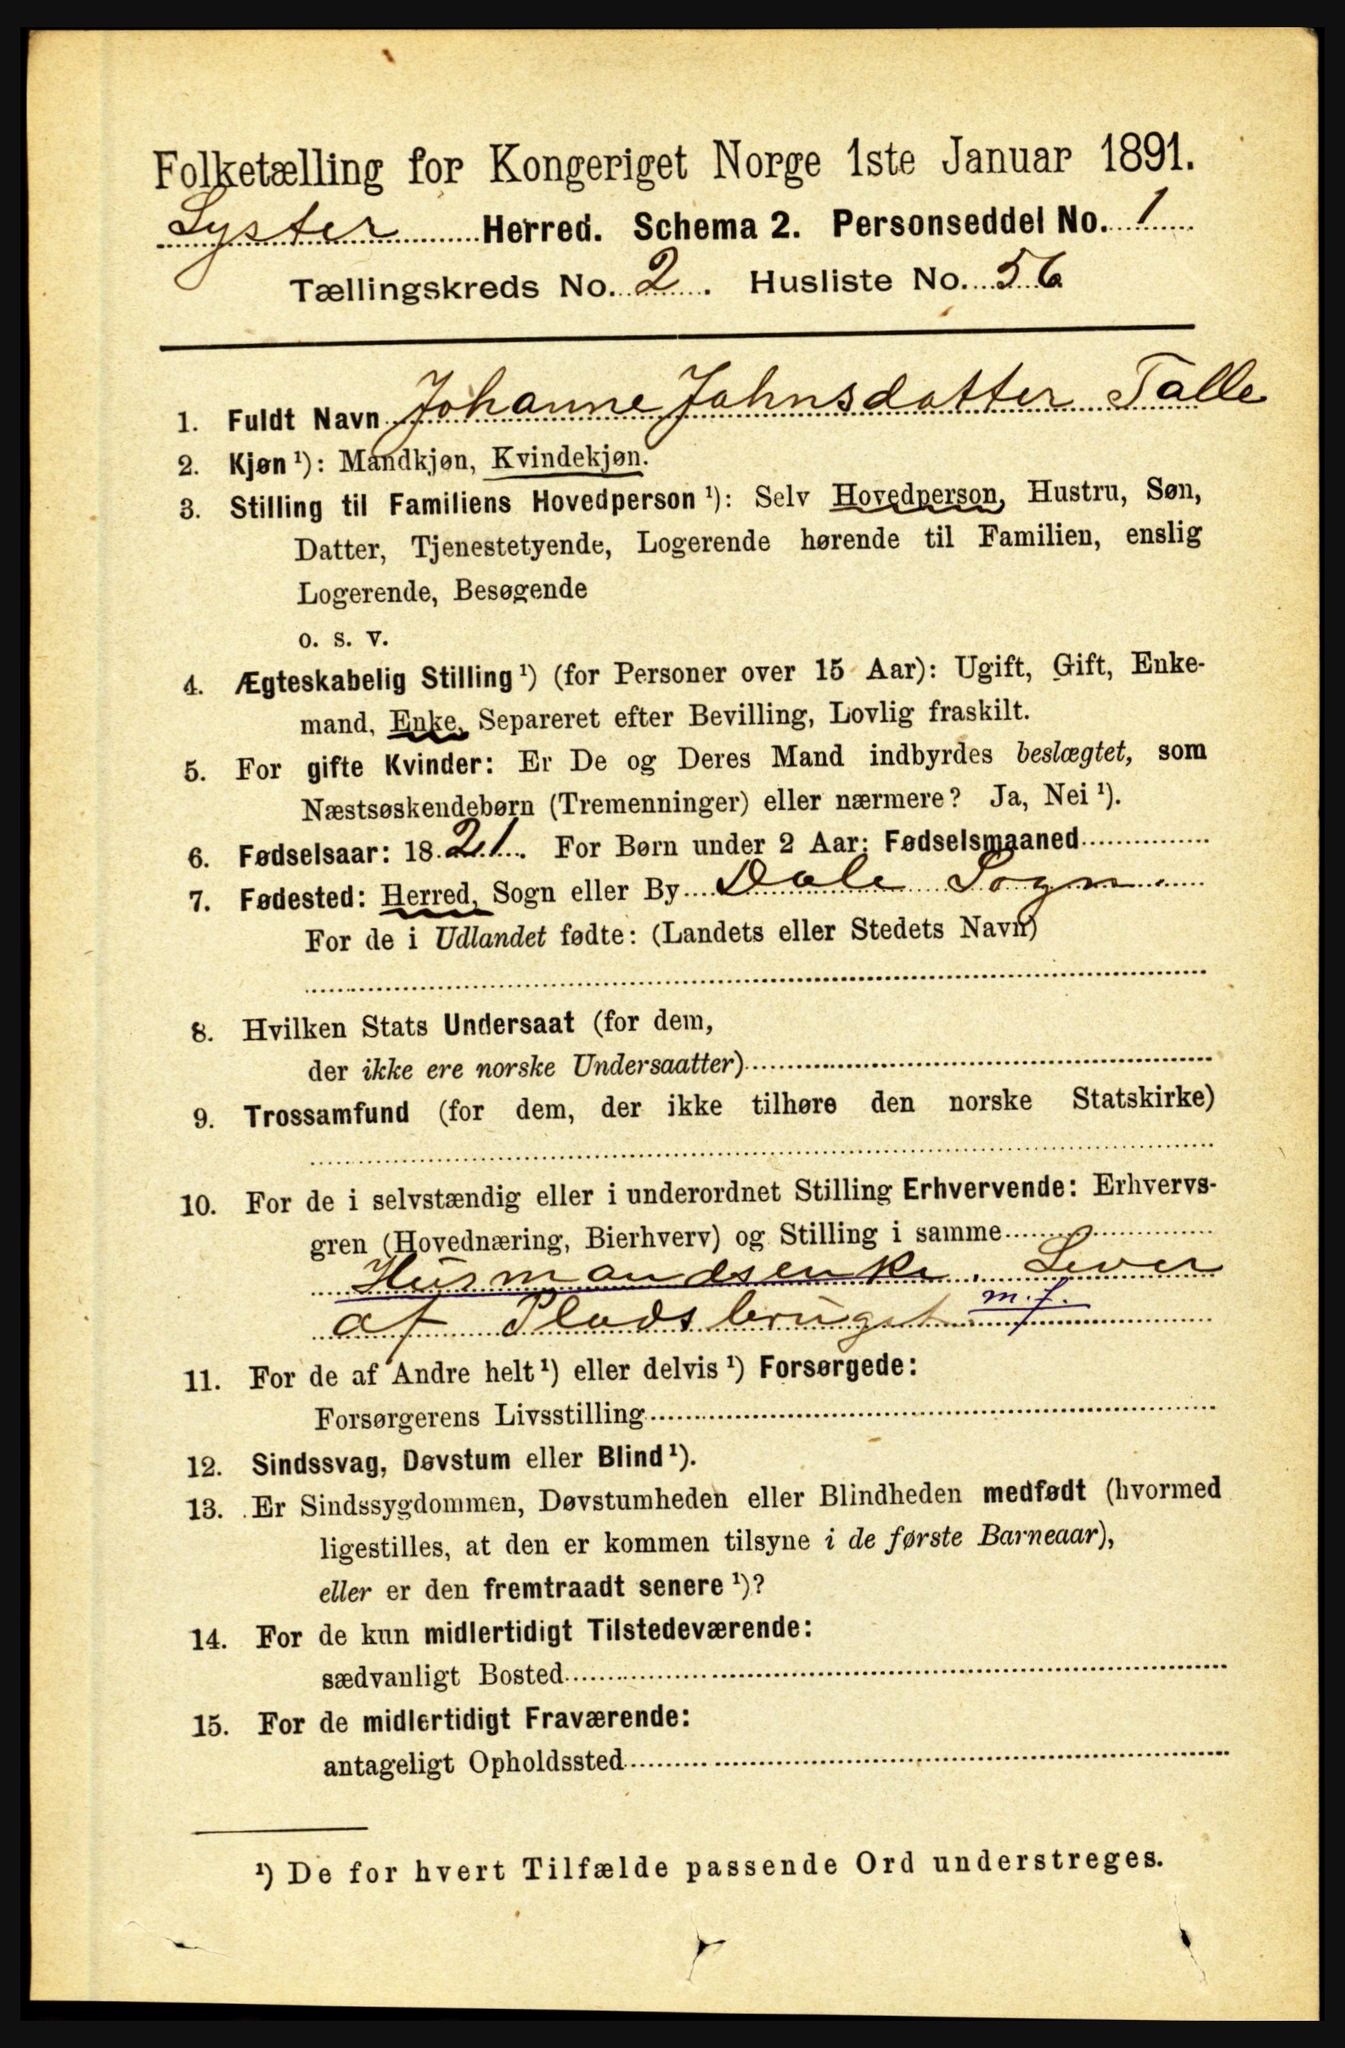 Folketælling for Kongeriget Norge 1ste Januar 1891.
Lyster Herred. Schema 2. Personseddel No. 1
Tællingskreds No. 2. Husliste No. 56
1. Fuldt Navn Johanne Johnsdatter Talle
2. Kjøn ¹): Mandkjøn, Kvindekjøn.
3. Stilling til Familiens Hovedperson ¹): Selv Hovedperson, Hustru, Søn,
Datter, Tjenestetyende, Logerende hørende til Familien, enslig
Logerende, Besøgende
o. s. v.
4. Ægteskabelig Stilling ¹) (for Personer over 15 Aar): Ugift, Gift, Enke-
mand, Enke, Separeret efter Bevilling, Lovlig fraskilt.
5. For gifte Kvinder: Er De og Deres Mand indbyrdes beslægtet, som
Næstsøskendebørn (Tremenninger) eller nærmere? Ja, Nei ¹).
6. Fødselsaar: 1821. For Børn under 2 Aar: Fødselsmaaned
7. Fødested: Herred, Sogn eller By Dale Sogn.
For de i Udlandet fødte: (Landets eller Stedets Navn)
8. Hvilken Stats Undersaat (for dem,
der ikke ere norske Undersaatter)
9. Trossamfund (for dem, der ikke tilhøre den norske Statskirke)
10. For de i selvstændig eller i underordnet Stilling Erhvervende: Erhvervs-
gren (Hovednæring, Bierhverv) og Stilling i samme
Husmandsenke. Lever
af Pladsbruget. m. f.
11. For de af Andre helt ¹) eller delvis ¹) Forsørgede:
Forsørgerens Livsstilling
12. Sindssvag, Døvstum eller Blind ¹).
13. Er Sindssygdommen, Døvstumheden eller Blindheden medfødt (hvormed
ligestilles, at den er kommen tilsyne i de første Barneaar),
eller er den fremtraadt senere ¹)?
14. For de kun midlertidigt Tilstedeværende:
sædvanligt Bosted
15. For de midlertidigt Fraværende:
antageligt Opholdssted
¹) De for hvert Tilfælde passende Ord understreges.